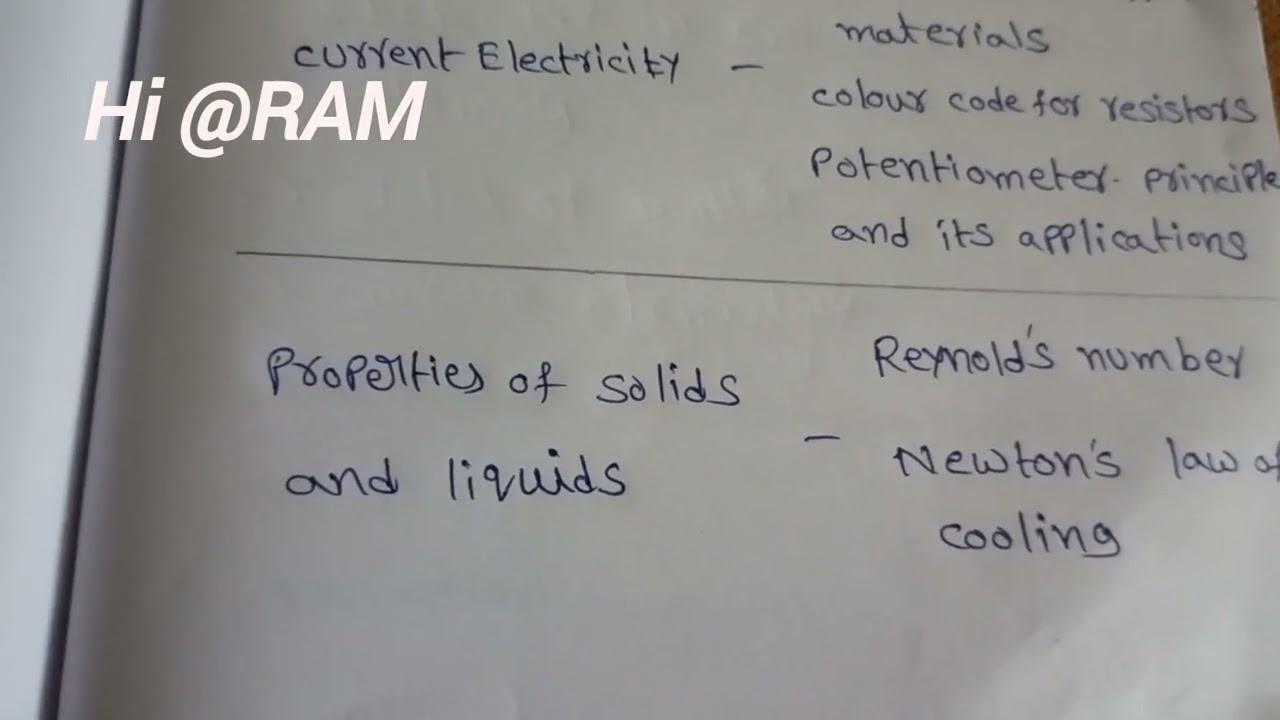 materials
current Electricity -
Hi @RAM
colour code for resistors
Potentiometer. principle
and its applications
Properties of solids
and liquids
-
Reynold's number
Newton's law of
cooling